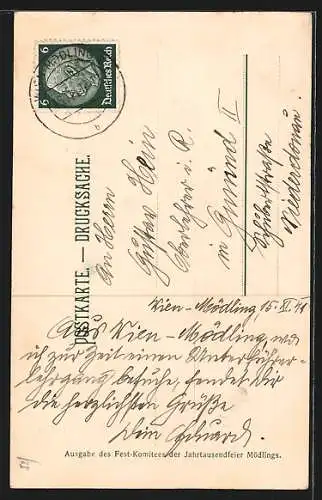 WIEN-MÖDLING
6 Deutsches Reich 6
POSTKARTE. — DRUCKSACHE.
An Herrn
Gustav Hein
Oberlehrer i. R.
in Gmünd II
Schubertstraße
Niederdonau.
Wien-Mödling 15. XI. 41
Aus Wien-Mödling, wo
ich zur Zeit einen Unterführer-
lehrgang besuche, sendet Dir
die herzlichsten Grüße
Dein Eduard.
Ausgabe des Fest-Komitees der Jahrtausendfeier Mödlings.